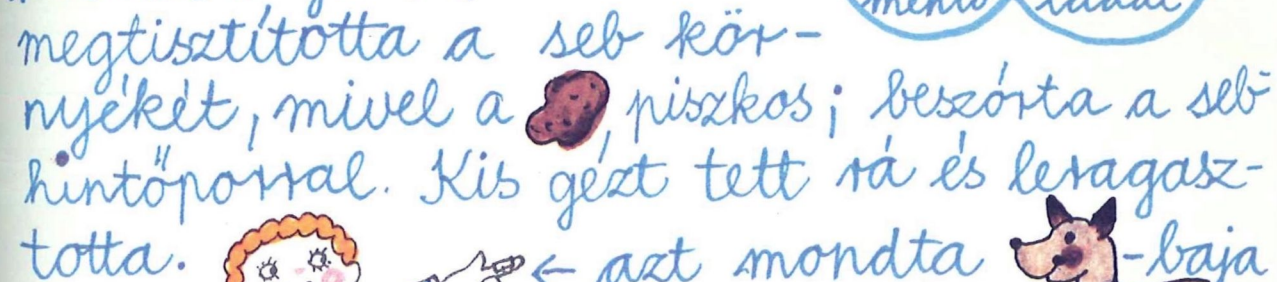 megtisztította a seb kör-
nyékét, mivel a , piszkos; beszórta a seb-
hintőporral. Kis gézt tett rá és leragasz-
totta. ← azt mondta -baja